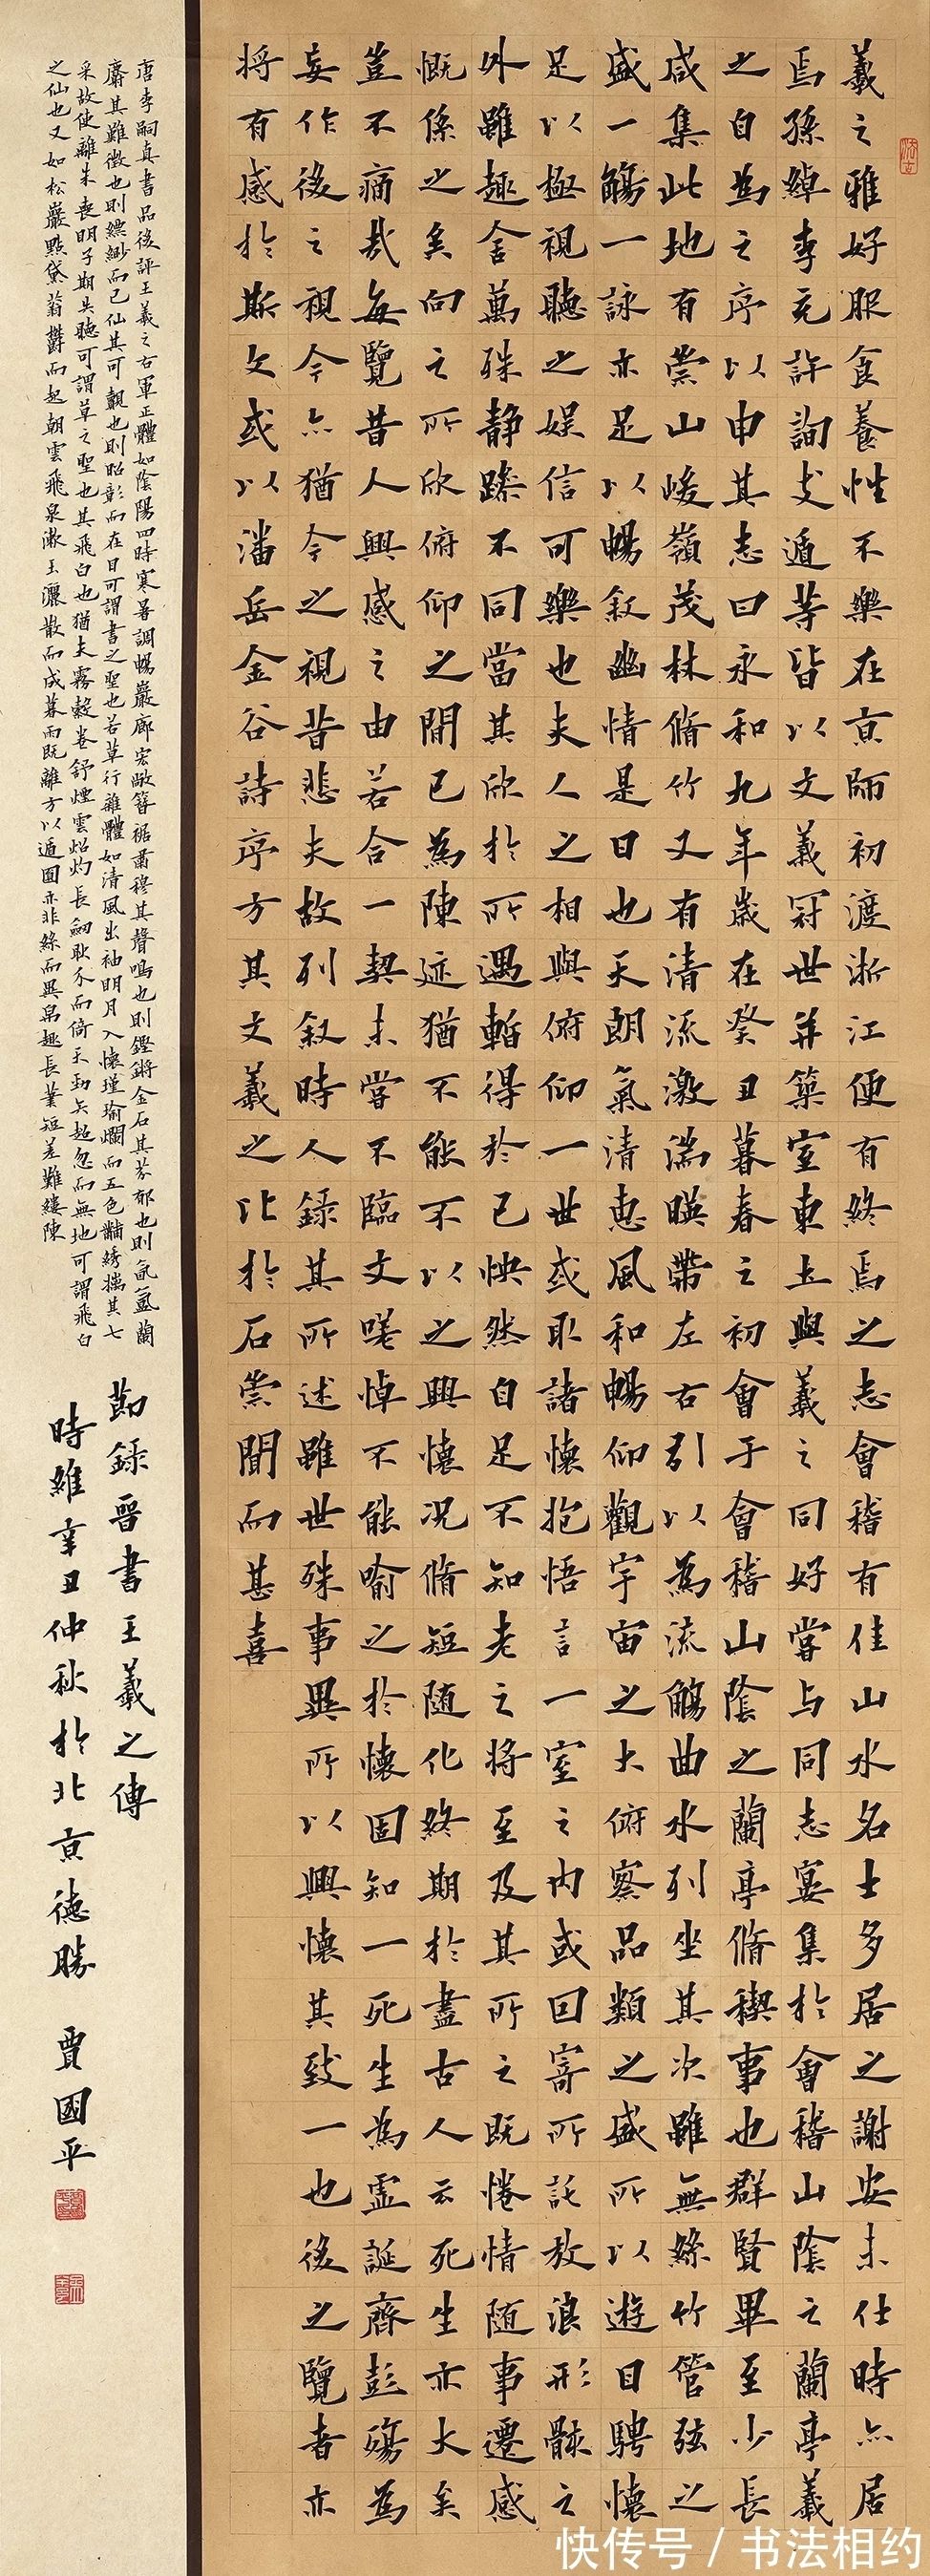 羲之雅好服食養性不樂在京師初渡浙江便有終焉之志會稽有佳山水名士多居之謝安未仕時亦居
焉孫綽李充許詢支遁等皆以文義冠世并築室東土與羲之同好嘗与同志宴集於會稽山陰之蘭亭羲
之自為之序以申其志曰永和九年歲在癸丑暮春之初會于會稽山陰之蘭亭脩稧事也群賢畢至少長
咸集此地有崇山峻嶺茂林脩竹又有清流激湍暎帶左右引以為流觴曲水列坐其次雖無絲竹管弦之
盛一觴一詠亦足以暢叙幽情是日也天朗氣清惠風和暢仰觀宇宙之大俯察品類之盛所以遊目騁懷
足以極視聽之娱信可樂也夫人之相與俯仰一世或取諸懷抱悟言一室之内或因寄所託放浪形骸之
外雖趣舍萬殊静躁不同當其欣於所遇暫得於己怏然自足不知老之将至及其所之既惓情随事遷感
慨係之矣向之所欣俯仰之間已為陳迹猶不能不以之興懷况脩短随化終期於盡古人云死生亦大矣
豈不痛哉每覽昔人興感之由若合一契未嘗不臨文嗟悼不能喻之於懷固知一死生為虚誕齊彭殤為
妄作後之視今亦猶今之視昔悲夫故列叙時人錄其所述雖世殊事異所以興懷其致一也後之覽者亦
将有感於斯文或以潘岳金谷詩序方其文羲之比於石崇聞而甚喜
唐李嗣真書品後評王羲之右軍正體如陰陽四時寒暑調暢巖廊宏敞簪裾肅穆其聲鳴也則鏗鏘金石其芬郁也則氤氲蘭
麝其難徵也則縹緲而已仙其可覿也則昭彰而在目可謂書之聖也若草行雜體如清風出袖明月入懷瑾瑜爛而五色黼綉摛其七
采故使離朱喪明子期失聽可謂草之聖也其飛白也猶夫霧縠卷舒煙雲炤灼長劒耿介而倚天勁矢超忽而無地可謂飛白
之仙也又如松巖點黛蓊欝而起朝雲飛泉漱玉灑散而成暮雨既離方以遁圓亦非絲而異帛趣長葉短差難縷陳
節録晉書王羲之傳
時維辛丑仲秋於北京德勝 賈國平
快传号 / 书法相约